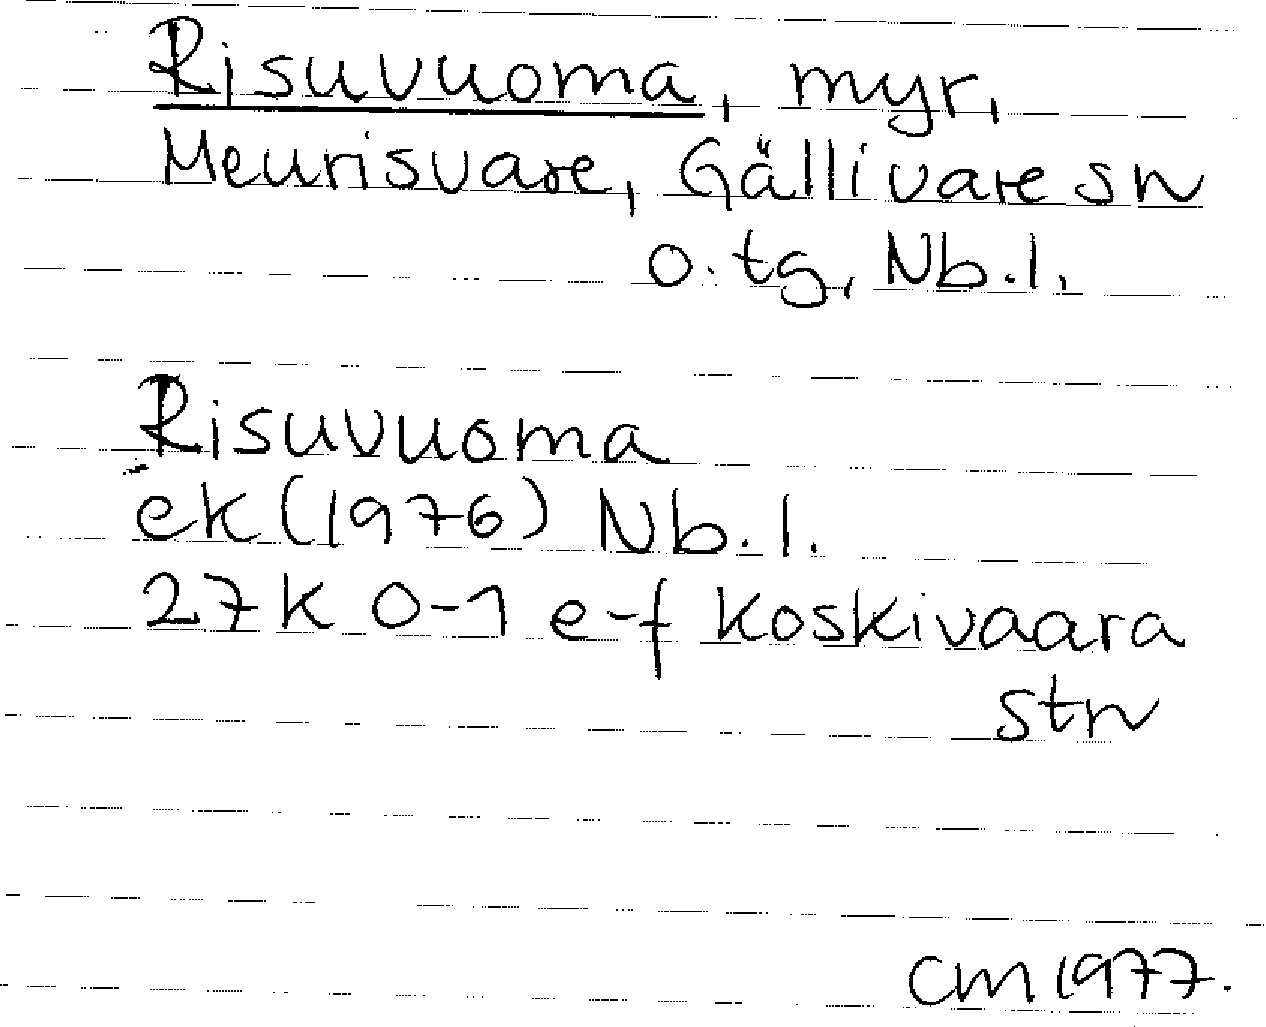 Risuvuoma, myr,
Meurisvare, Gällivare sn
o. tg, Nb.l.
Risuvuoma
ek (1976) Nb.l.
27K 0-1 e-f Koskivaara
stn
CM 1977.